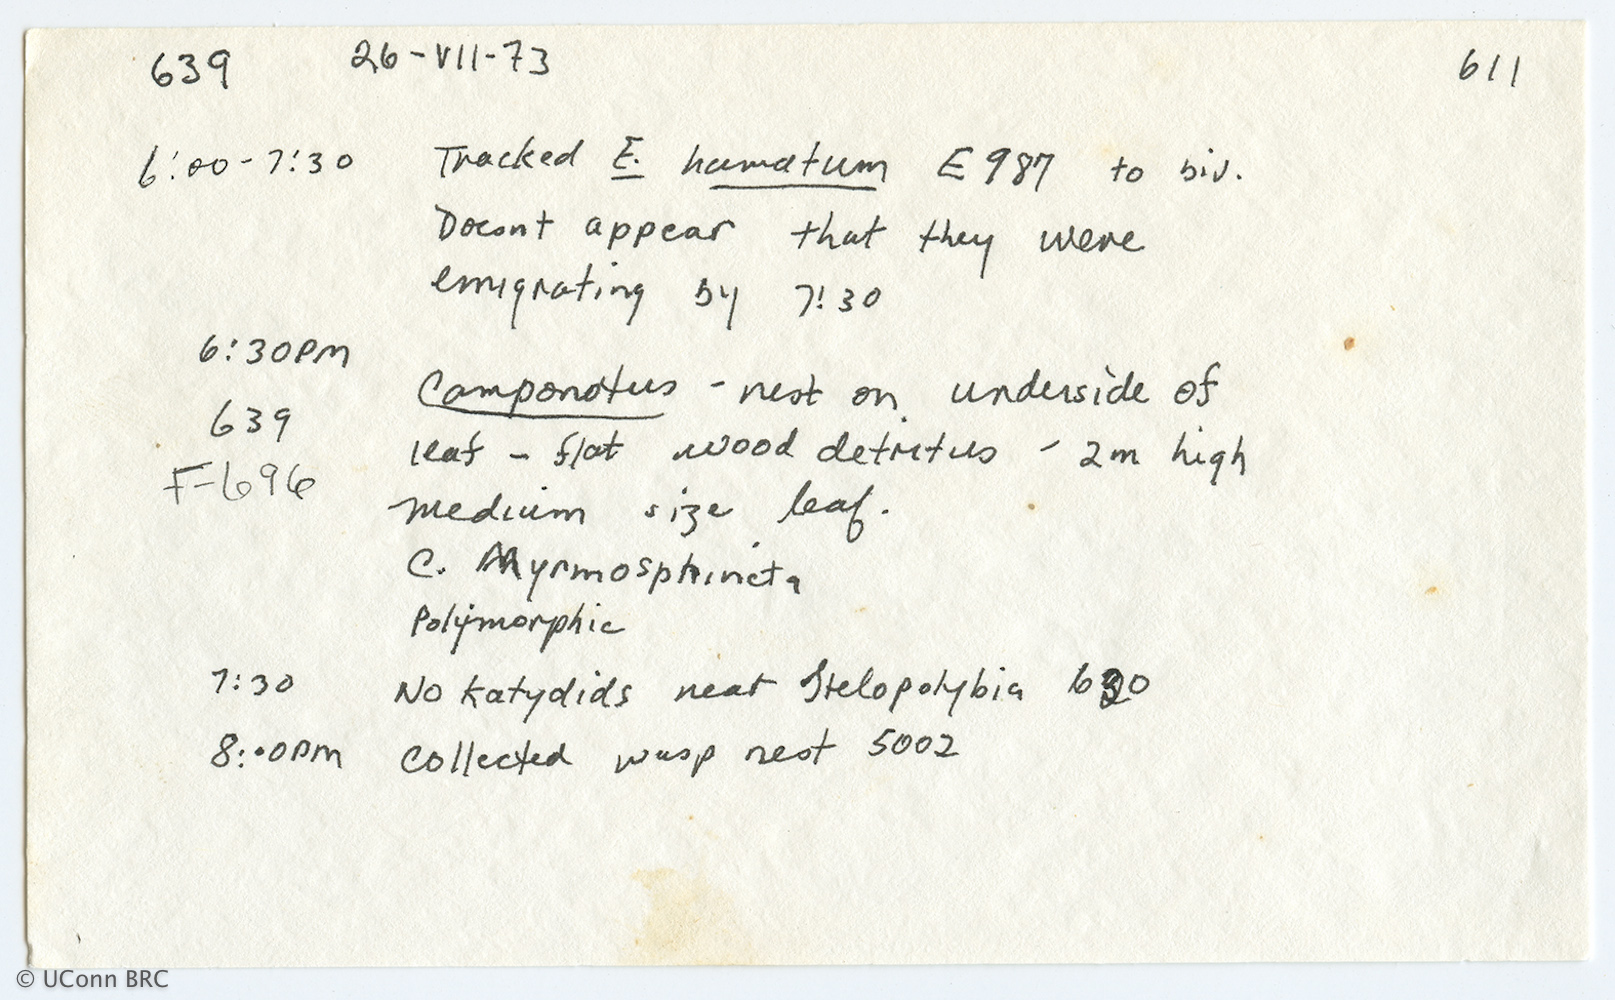 639 26-VII-73 611
6:00-7:30 Tracked E. hamatum E987 to biv.
Doesnt appear that they were
emigrating by 7:30
6:30PM
Camponotus - nest on underside of
639
leaf - flat wood detritus - 2m high
F-696
medium size leaf.
C. Myrmosphincta
Polymorphic
7:30 No katydids near Stelopolybia 630
8:00PM Collected wasp nest 5002
© UConn BRC